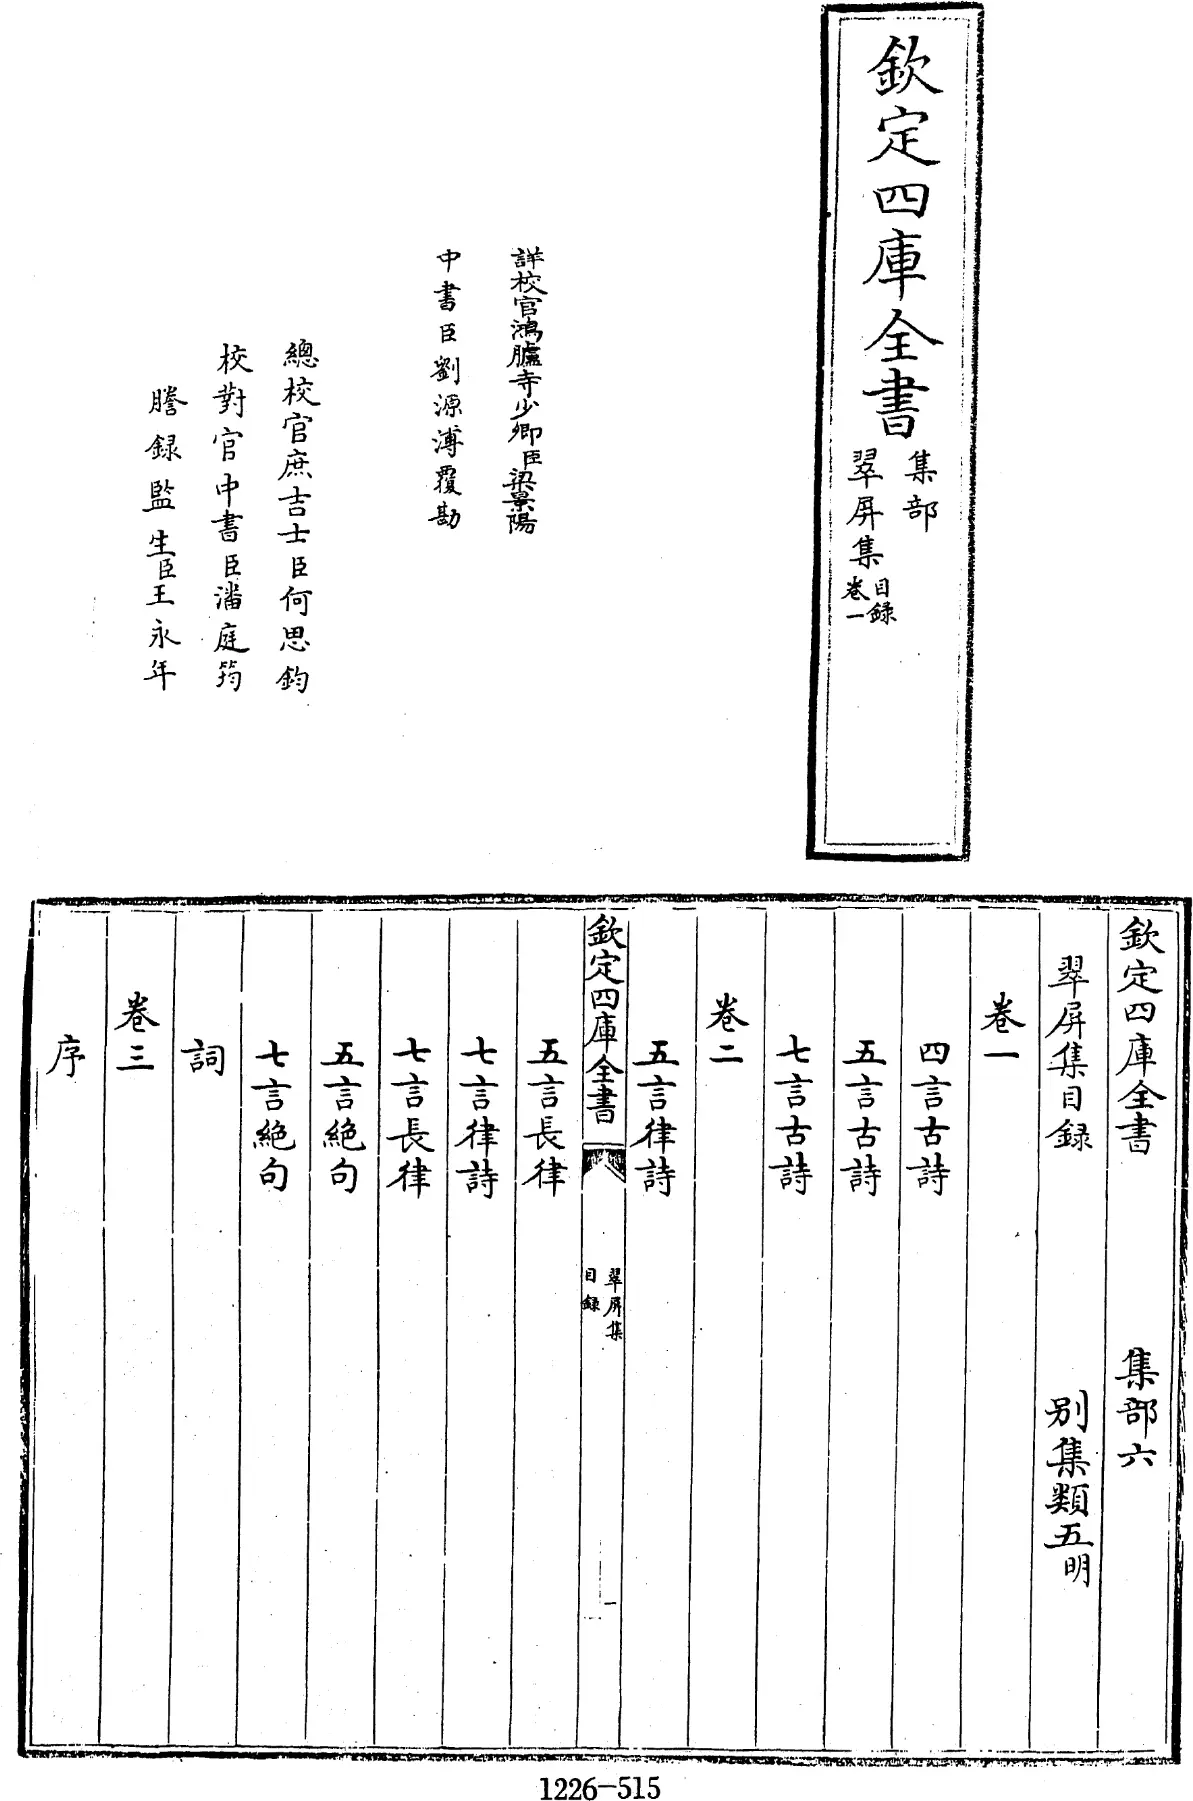 欽定四庫全書
集部
翠屏集
目録
卷一
詳校官鴻臚寺少卿臣梁景陽
中書臣劉源溥覆勘
總校官庶吉士臣何思鈞
校對官中書臣潘庭筠
謄録監生臣王永年
欽定四庫全書 集部六
翠屏集目録 别集類五明
卷一
四言古詩
五言古詩
七言古詩
卷二
五言律詩
欽定四庫全書
翠屏集
目録
一
五言長律
七言律詩
七言長律
五言絶句
七言絶句
詞
卷三
序
1226-515